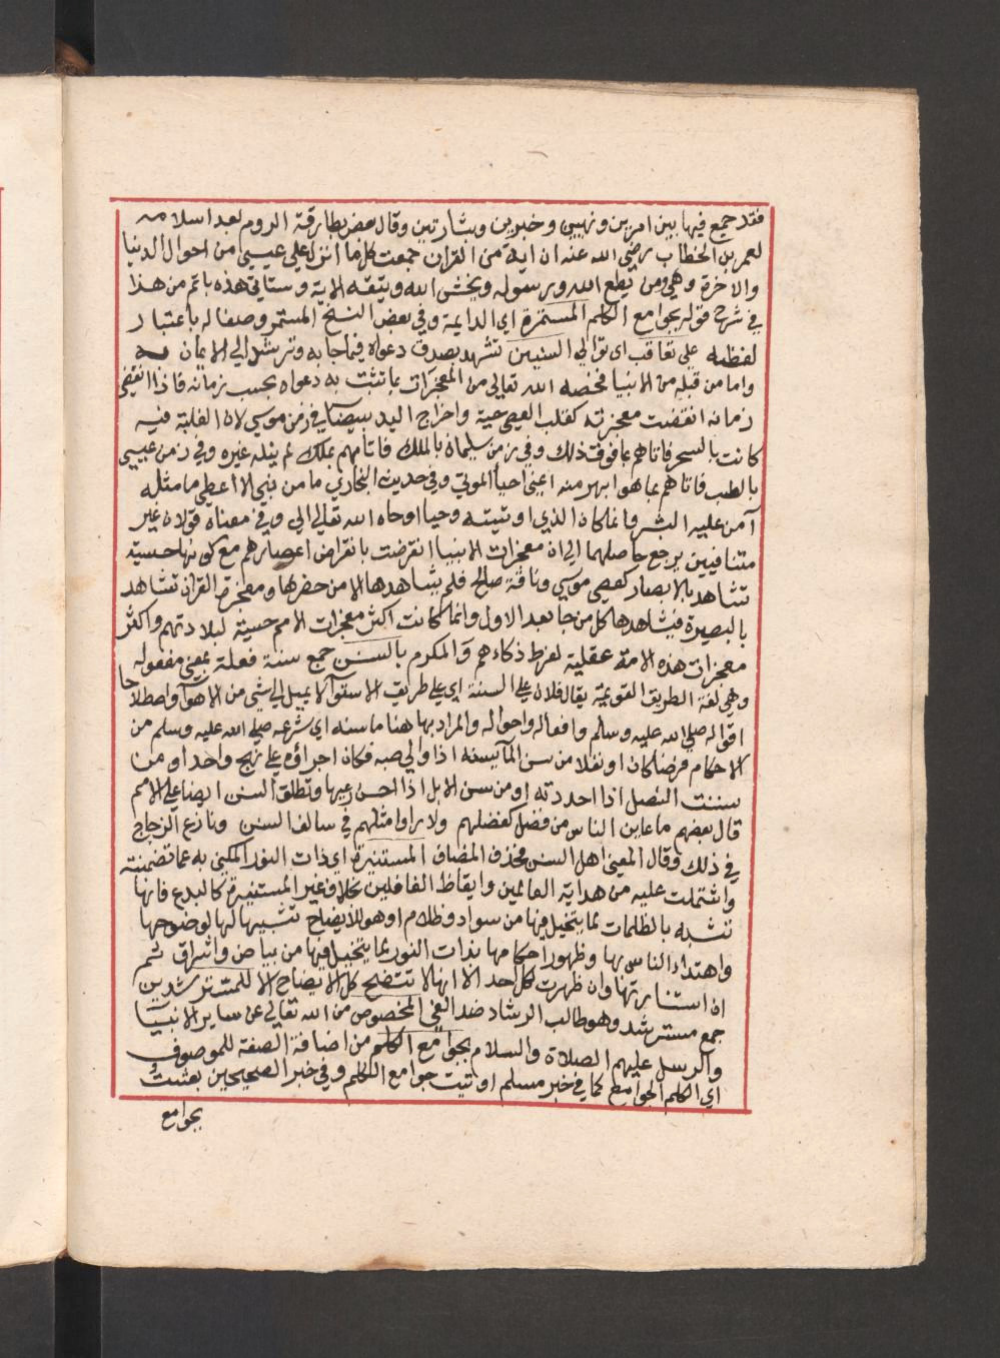 فقد جمع فيها بين امرين ونهيين وخبرين وبشارتين وقال بعض بطارقة الروم بعد اسلامه
لعمر بن الخطاب رضي الله عنه ان اية من القران جمعت كل ما انزل علي عيسي من احوال الدنيا
والاخرة وهي ومن يطع الله ورسوله ويخش الله ويتقه الاية وستاتي هذه باتم من هذا
في شرح قوله بجوامع الكلم المستمرة اي الدايمة وفي بعض النسخ المستمر وصفا له باعتبار
لفظه علي تعاقب اي توالي السنين تشهد بصدق دعواه فيما جا به وترشد الي الايمان به
واما من قبله من الانبيا فخصه الله تعالي من المعجزات بما تثبت به دعواه بحسب زمانه فاذا انقضي
زمانه انقضت معجزته كقلب العصي حية واخراج اليد بيضا في زمن موسي لان الغلبة فيه
كانت بالسحر فاتاهم بما فوق ذلك وفي زمن سليمان بالملك فاتاهم بملك لم ينله غيره وفي زمن عيسي
بالطب فاتاهم بما هو ابهر منه اعني احيا الموتي وفي حديث البخاري ما من نبي الا اعطي ما مثله
آمن عليه البشر وانما كان الذي اوتيته وحيا اوحاه الله تعالي الي وفي معناه قولان غير
متنافيين يرجع حاصلهما الي ان معجزات الانبيا انقرضت بانقراض اعصارهم مع كونها حسية
تشاهد بالابصار كعصي موسي وناقة صالح فلم يشاهدها الا من حضرها ومعجزة القران تشاهد
بالبصيرة فيشاهدها كل من جا بعد الاول وانما كانت اكثر معجزات الامم حسية لبلادتهم واكثر
معجزات هذه الامة عقلية لفرط ذكاءهم والمكرم بالسنن جمع سنة فعلة بمعني مفعوله
وهي لغة الطريق القويمة يقال فلان علي السنة اي علي طريق الاستوآ لا يميل الي شي من الاهوآ واصطلاحا
اقواله صلي الله عليه وسلم وافعاله واحواله والمراد بها هنا ما سنه اي شرعه صلي الله عليه وسلم من
الاحكام فرضا كان او نفلا من سن المآ يسنه اذا والي صبه فكان اجراؤه علي نهج واحد او من
سننت النصل اذا احددته او من سن الابل اذا احسن رعيها وتطلق السنن ايضا علي الامم
قال بعضهم ما عاين الناس من فضل كفضلهم ولا راوا مثلهم في سالف السنن ونازع الزجاج
في ذلك وقال المعني اهل السنن فحذف المضاف المستنيرة اي ذات النور المكني به عما تضمنته
واشتملت عليه من هداية العالمين وايقاظ الغافلين بخلاف غير المستنيرة كالبدع فانها
تشبه بالظلمات لما يتخيل فيها من سواد وظلام او هو للايضاح تشبيها لها لوضوحها
واهتداء الناس بها وظهور احكامها بذات النور لما يتخيل فيها من بياض واشراق ثم
ان استنارتها وان ظهرت لكل احد الا انها لا تتضح كل الايضاح الا للمسترشدين
جمع مسترشد وهو طالب الرشاد ضد الغي المخصوص من الله تعالي عن ساير الانبيا
والرسل عليهم الصلاة والسلام بجوامع الكلم من اضافة الصفة للموصوف
اي الكلم الجوامع كما في خبر مسلم اوتيت جوامع الكلم وفي خبر الصحيحين بعثت
بجوامع